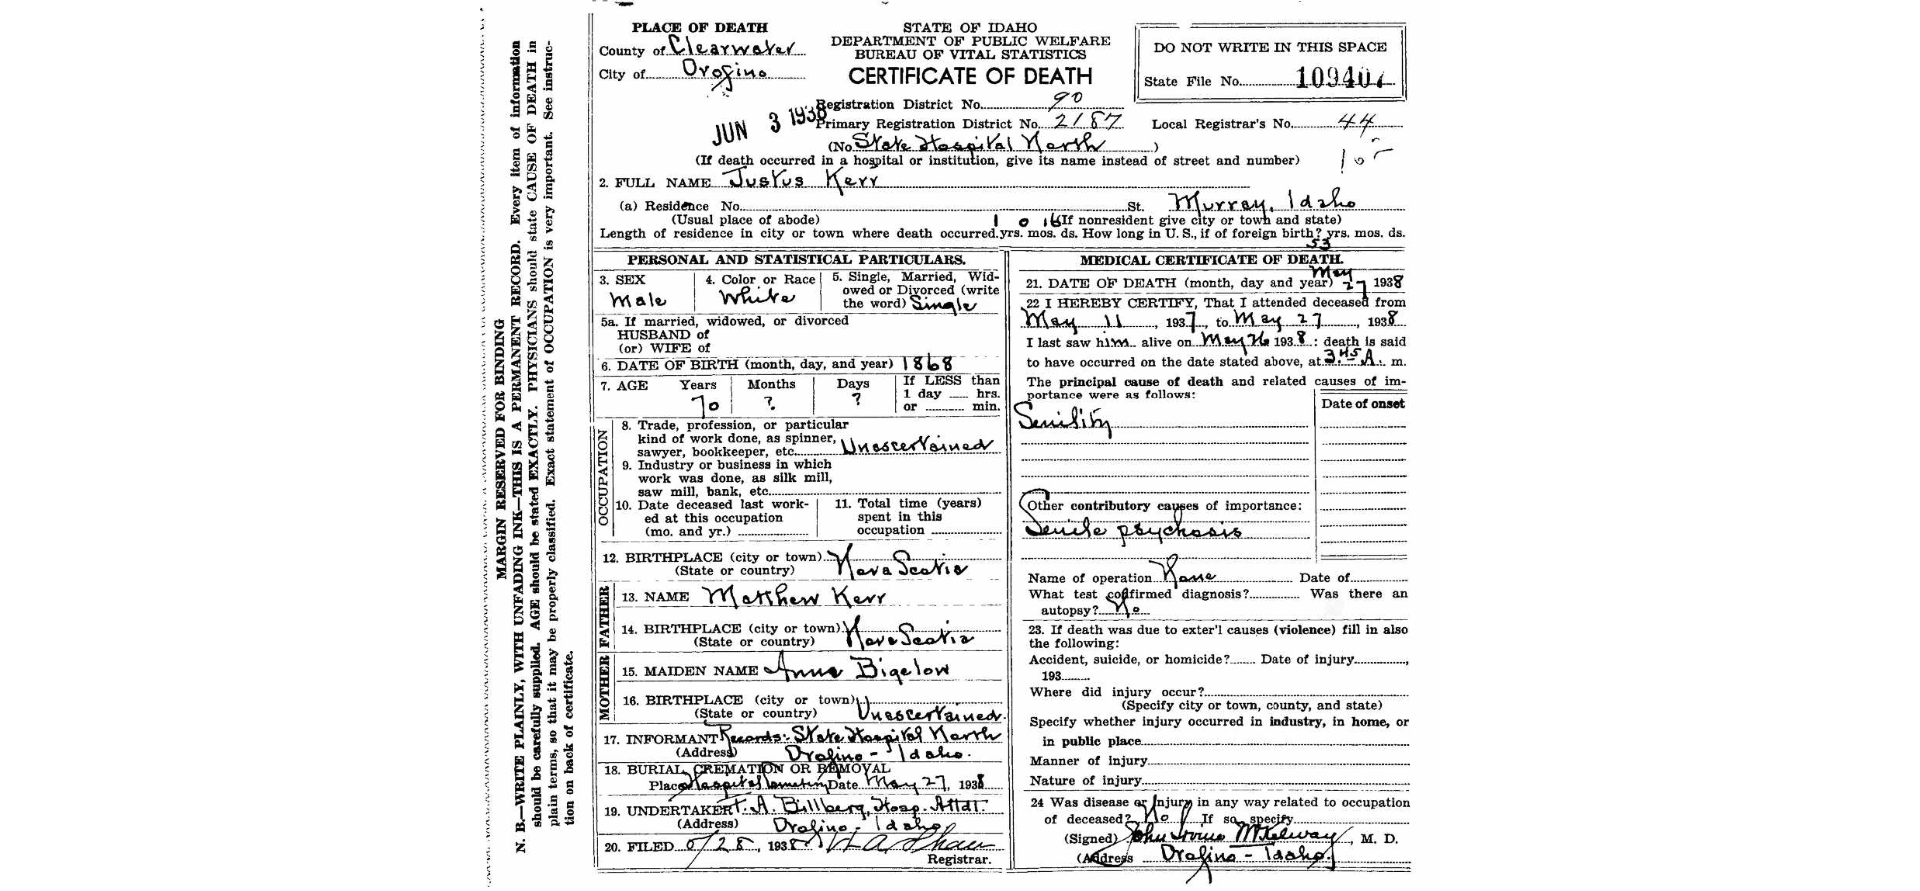 MARGIN RESERVED FOR BINDING
N. B.—WRITE PLAINLY, WITH UNFADING INK—THIS IS A PERMANENT RECORD. Every item of information
should be carefully supplied. AGE should be stated EXACTLY. PHYSICIANS should state CAUSE OF DEATH in
plain terms, so that it may be properly classified. Exact statement of OCCUPATION is very important. See instruc-
tion on back of certificate.
PLACE OF DEATH
County of Clearwater
City of Orofino
STATE OF IDAHO
DEPARTMENT OF PUBLIC WELFARE
BUREAU OF VITAL STATISTICS
CERTIFICATE OF DEATH
DO NOT WRITE IN THIS SPACE
State File No. 109407
JUN 3 1938
Registration District No. 90
Primary Registration District No. 2187
Local Registrar's No. 44
(No. State Hospital North )
(If death occurred in a hospital or institution, give its name instead of street and number)
2. FULL NAME Justus Kerr
(a) Residence No. St. Murray, Idaho
(Usual place of abode) (If nonresident give city or town and state)
1 0 16
Length of residence in city or town where death occurred. yrs. mos. ds. How long in U. S., if of foreign birth? yrs. mos. ds.
53
PERSONAL AND STATISTICAL PARTICULARS.
3. SEX
Male
4. Color or Race
White
5. Single, Married, Wid-
owed or Divorced (write
the word) Single
5a. If married, widowed, or divorced
HUSBAND of
(or) WIFE of
6. DATE OF BIRTH (month, day, and year) 1868
7. AGE Years Months Days
70 ? ?
If LESS than
1 day hrs.
or min.
OCCUPATION
8. Trade, profession, or particular
kind of work done, as spinner,
sawyer, bookkeeper, etc. Unascertained
9. Industry or business in which
work was done, as silk mill,
saw mill, bank, etc.
10. Date deceased last work-
ed at this occupation
(mo. and yr.)
11. Total time (years)
spent in this
occupation
12. BIRTHPLACE (city or town)
(State or country) Nova Scotia
FATHER
13. NAME Matthew Kerr
14. BIRTHPLACE (city or town)
(State or country) Nova Scotia
MOTHER
15. MAIDEN NAME Anna Bigelow
16. BIRTHPLACE (city or town)
(State or country) Unascertained.
17. INFORMANT Records: State Hospital North
(Address) Orofino - Idaho.
18. BURIAL, CREMATION OR REMOVAL
Place Hospital Cemetery Date May 27, 1938
19. UNDERTAKER F. A. Billberg, Hosp. Attdt.
(Address) Orofino - Idaho
20. FILED 28, 1938
Registrar.
MEDICAL CERTIFICATE OF DEATH.
21. DATE OF DEATH (month, day and year) May 27 1938
22 I HEREBY CERTIFY, That I attended deceased from
May 11, 1937, to May 27, 1938
I last saw him alive on May 26 1938: death is said
to have occurred on the date stated above, at 3.45 A. m.
The principal cause of death and related causes of im-
portance were as follows:
Date of onset
Senility
Other contributory causes of importance:
Senile psychosis
Name of operation None Date of
What test confirmed diagnosis? Was there an
autopsy? No
23. If death was due to exter'l causes (violence) fill in also
the following:
Accident, suicide, or homicide? Date of injury,
193
Where did injury occur?
(Specify city or town, county, and state)
Specify whether injury occurred in industry, in home, or
in public place
Manner of injury
Nature of injury
24 Was disease or Injury in any way related to occupation
of deceased? No If so, specify
(Signed) John Irvine McKelway, M. D.
(Address Orofino - Idaho.